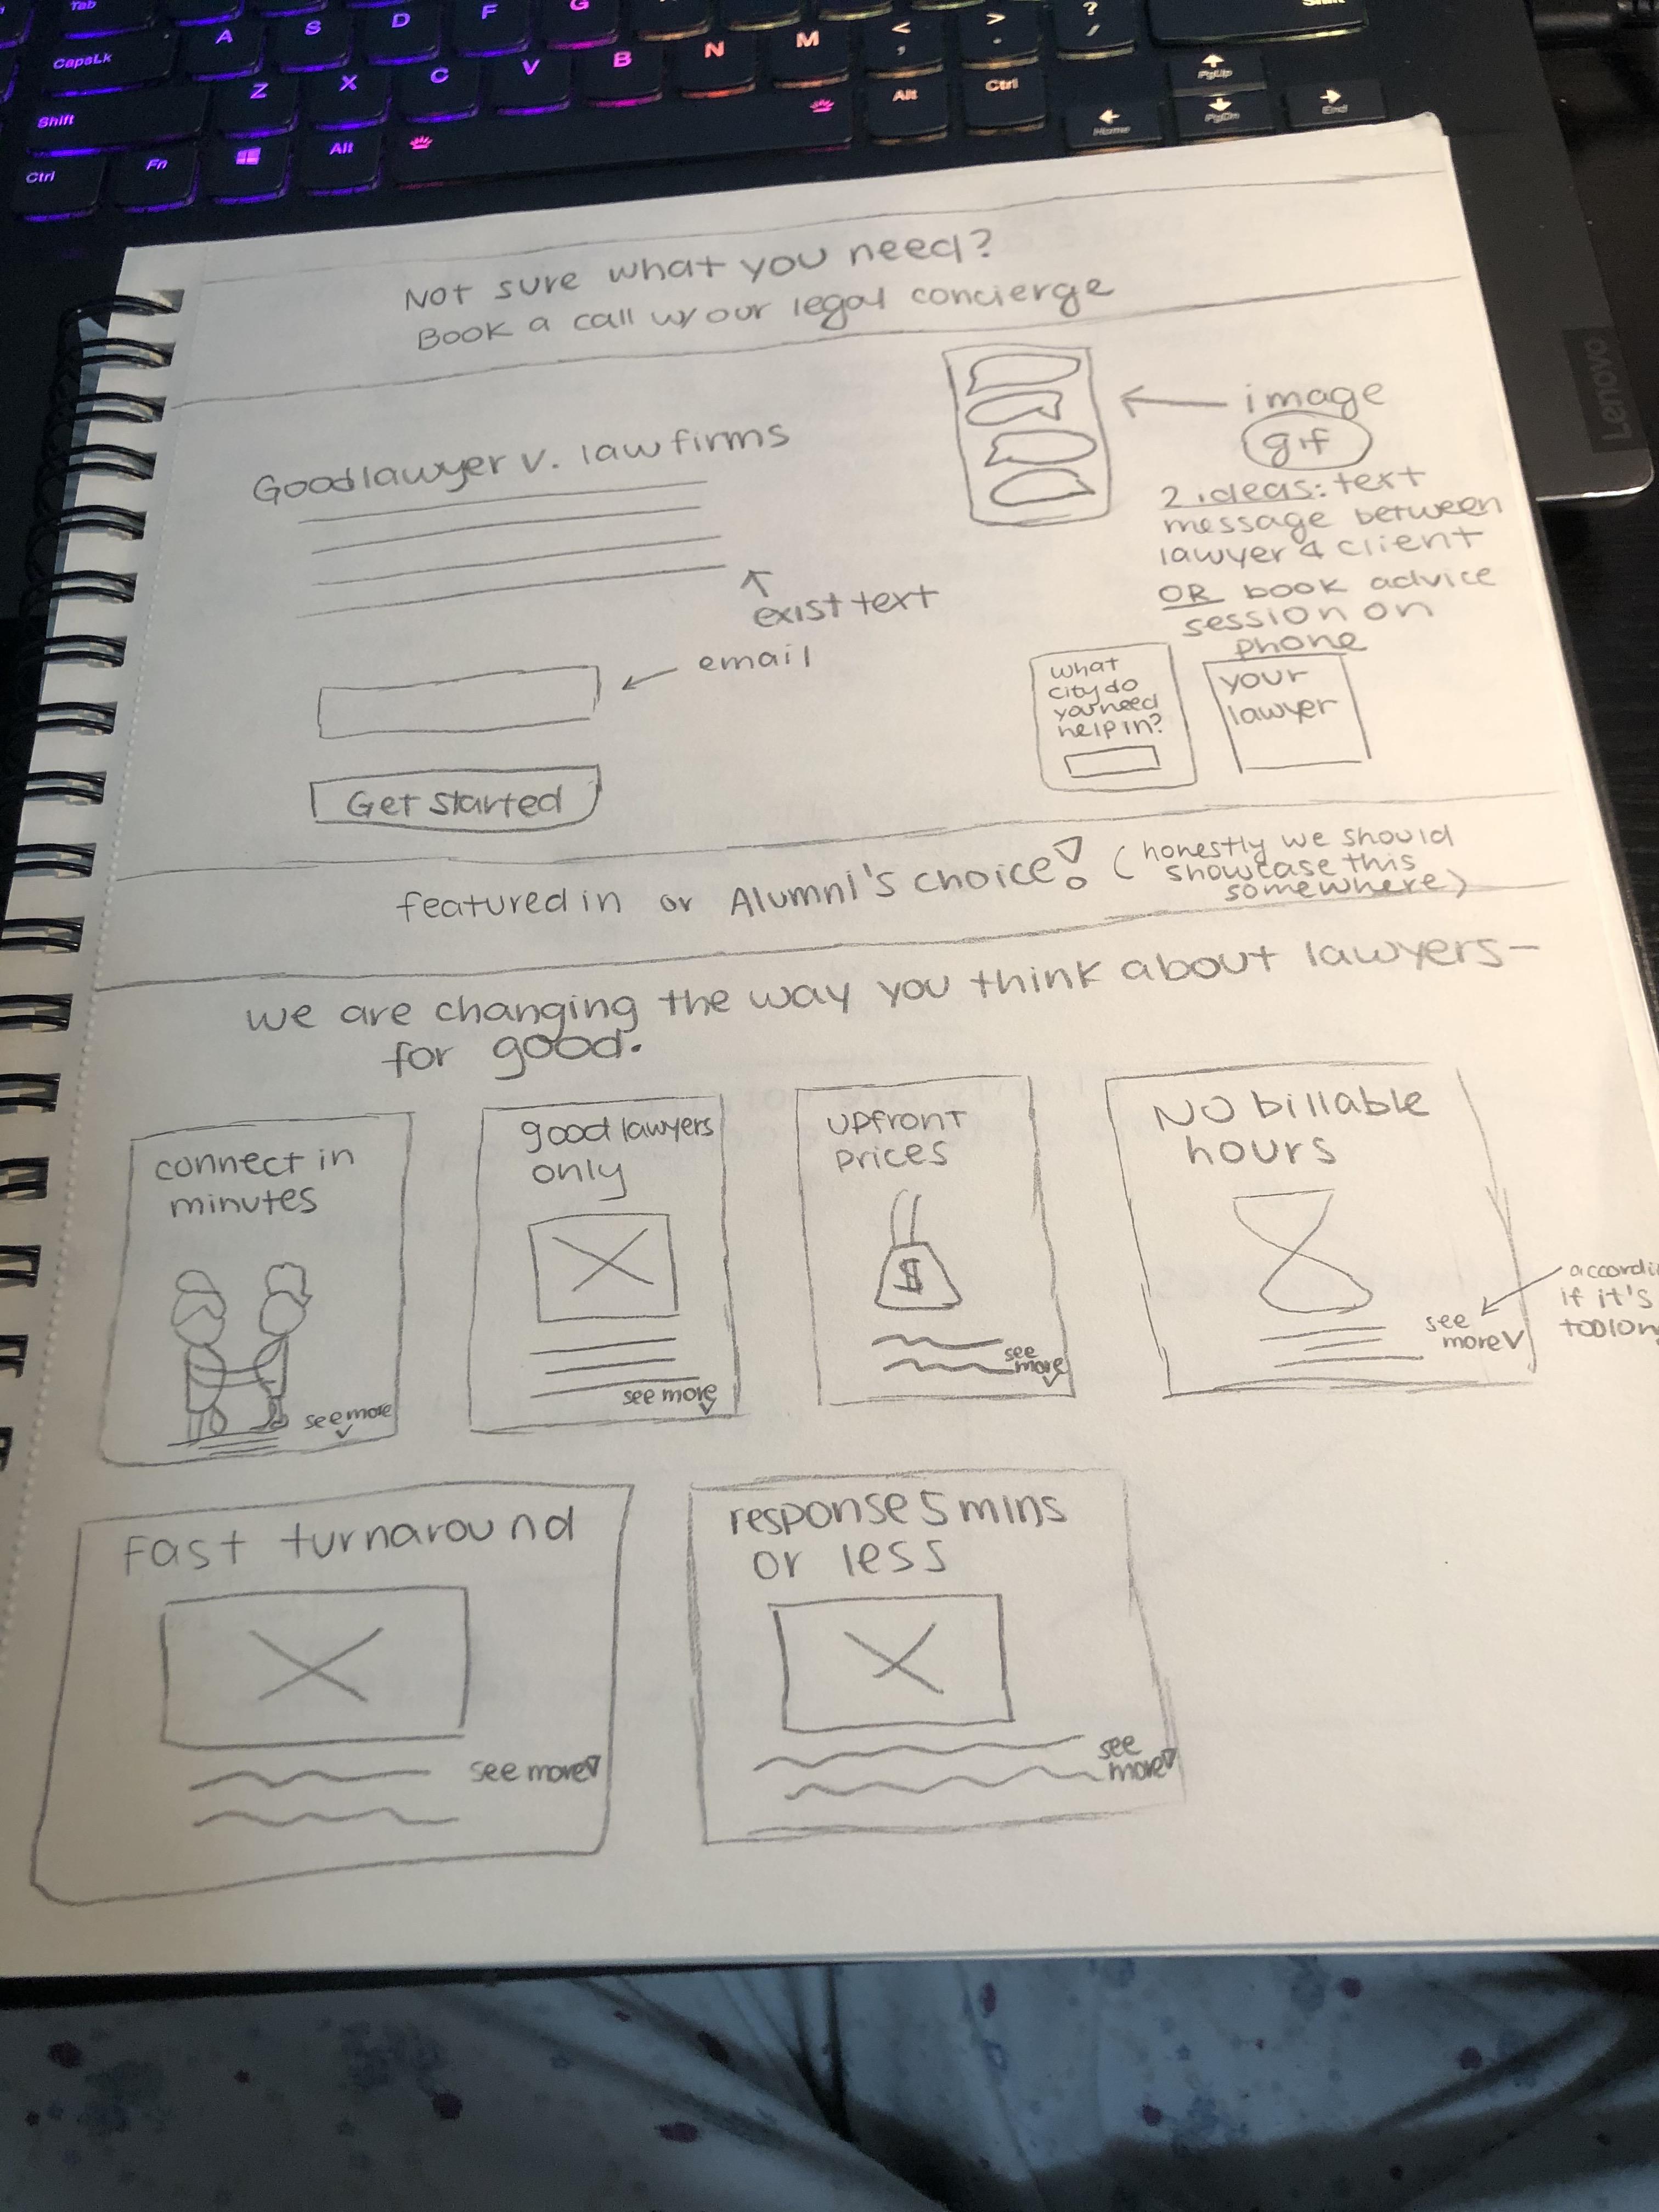 Tab
CapsLk
A
S
D
F
G
Shift
Z
X
C
V
B
N
M
<
,
>
.
?
/
Shift
Ctrl
Fn
Alt
Alt
Ctrl
PgUp
Home
PgDn
End
Lenovo
Not sure what you need?
Book a call w/our legal concierge
Goodlawyer v. law firms
exist text
email
Get started
image
gif
2 ideas: text
message between
lawyer & client
OR book advice
session on
phone
what
city do
you need
help in?
your
lawyer
featured in or Alumni's choice! (honestly we should
showcase this
somewhere)
we are changing the way you think about lawyers-
for good.
connect in
minutes
see more
good lawyers
only
see more
upfront
prices
$
see
more
No billable
hours
see
more
if it's
Fast turnaround
see more
response 5 mins
or less
see
more